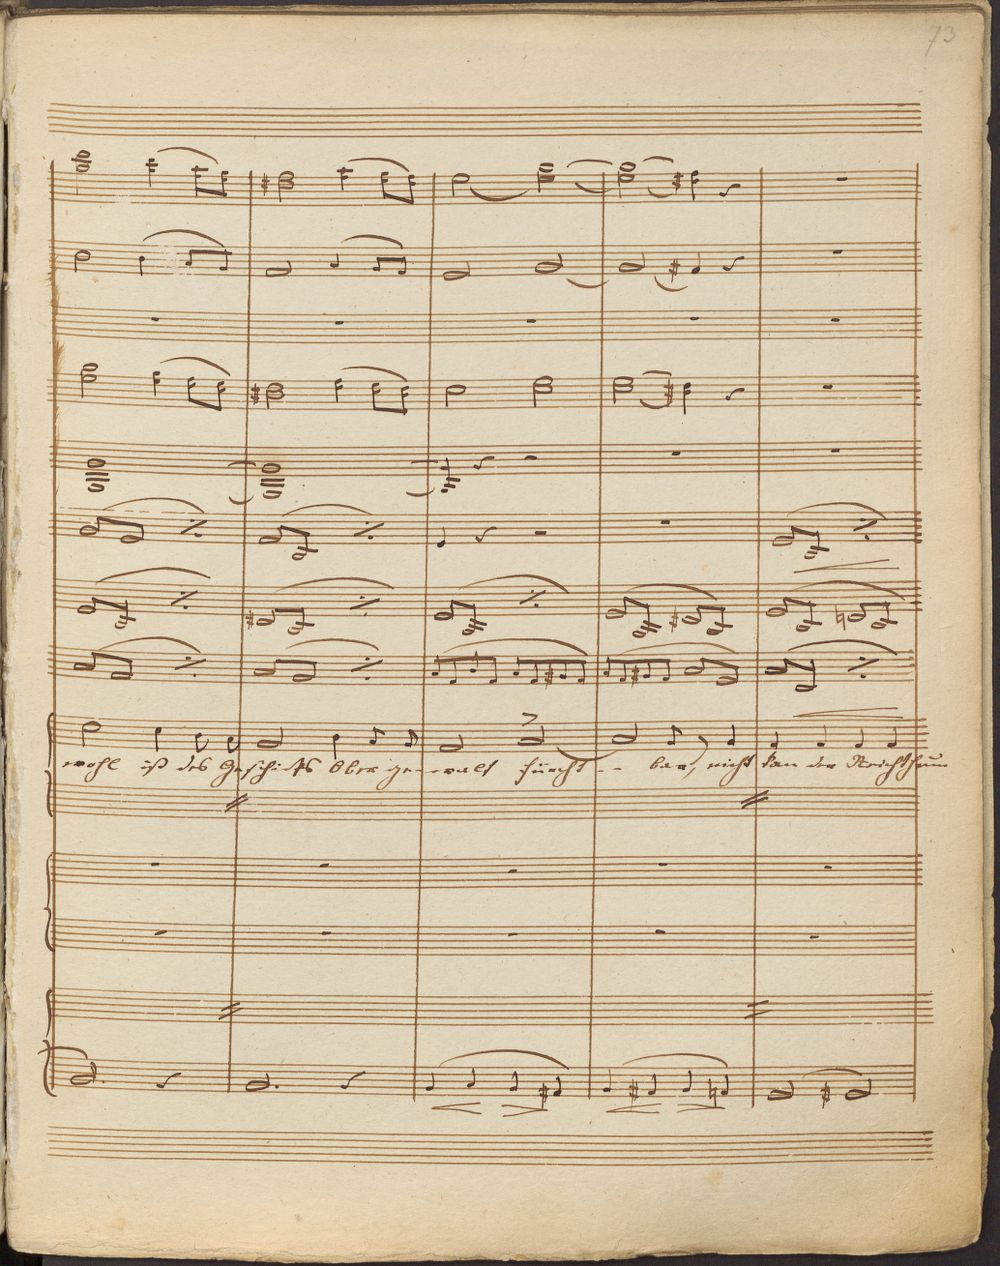 73
wohl ist des Geschicks Obergewalt fürcht - - bar, nicht kan der Reichthum